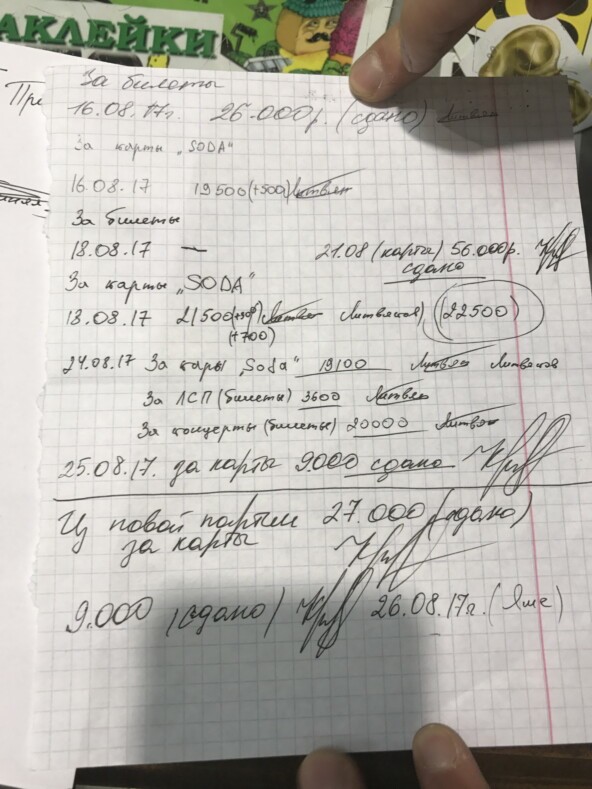 АКЛЕЙКИ
Пре
За билеты
16.08.17г. 26.000р. (сдано) Литвян
За карты „SODA"
16.08.17 19500(+500) Литвян
За билеты
18.08.17 — 21.08 (карты) 56.000р.
сдано
За карты „SODA"
18.08.17 21500(+300) Литвян Литвяков) (22500)
(+700)
24.08.17 За кары „Soda" 19100 Литвян Литвяков
За ЛСП (билеты) 3600 Литвян
За концерты (билеты) 20000 Литвян
25.08.17. за карты 9.000 сдано
Из новой партии 27.000 (сдано)
за карты
9.000 (сдано) 26.08.17г. (Яне)